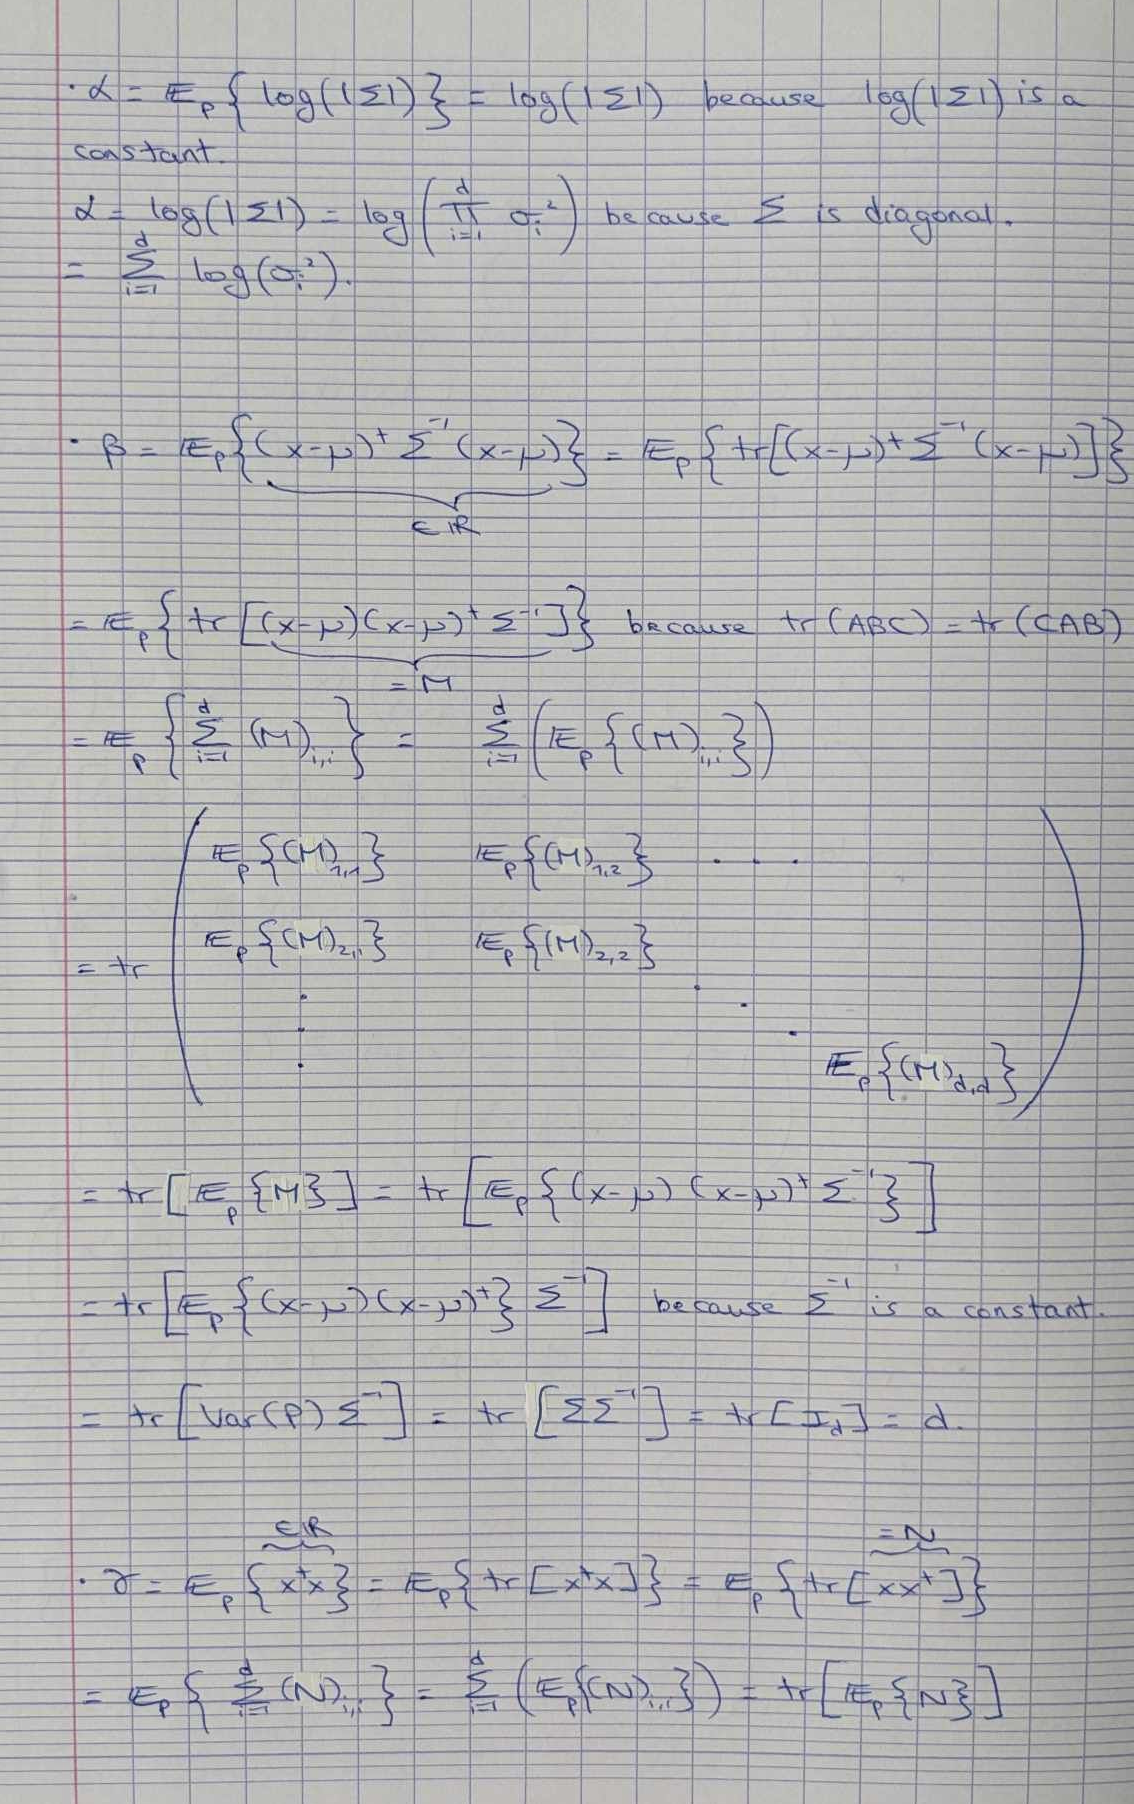 · α = 𝔼_p{ log(|Σ|) } = log(|Σ|) because log(|Σ|) is a
constant.
α = log(|Σ|) = log( ∏_{i=1}^{d} σ_i² ) because Σ is diagonal.
= Σ_{i=1}^{d} log(σ_i²).
· β = 𝔼_p{ (x-μ)^t Σ^{-1} (x-μ) } = 𝔼_p{ tr[(x-μ)^t Σ^{-1} (x-μ)] }
∈ ℝ
= 𝔼_p{ tr[(x-μ)(x-μ)^t Σ^{-1}] } because tr(ABC) = tr(CAB)
= M
= 𝔼_p{ Σ_{i=1}^{d} (M)_{i,i} } = Σ_{i=1}^{d} ( 𝔼_p{(M)_{i,i}} )
𝔼_p{(M)_{1,1}} 𝔼_p{(M)_{1,2}} . . .
𝔼_p{(M)_{2,1}} 𝔼_p{(M)_{2,2}}
= tr
𝔼_p{(M)_{d,d}}
= tr[ 𝔼_p{M} ] = tr[ 𝔼_p{ (x-μ)(x-μ)^t Σ^{-1} } ]
= tr[ 𝔼_p{(x-μ)(x-μ)^t} Σ^{-1} ] because Σ^{-1} is a constant.
= tr[ Var(p) Σ^{-1} ] = tr[ΣΣ^{-1}] = tr[I_d] = d.
∈ ℝ = N
· γ = 𝔼_p{ x^t x } = 𝔼_p{ tr[x^t x] } = 𝔼_p{ tr[x x^t] }
= 𝔼_p{ Σ_{i=1}^{d} (N)_{i,i} } = Σ_{i=1}^{d} ( 𝔼_p{(N)_{i,i}} ) = tr[ 𝔼_p{N} ]